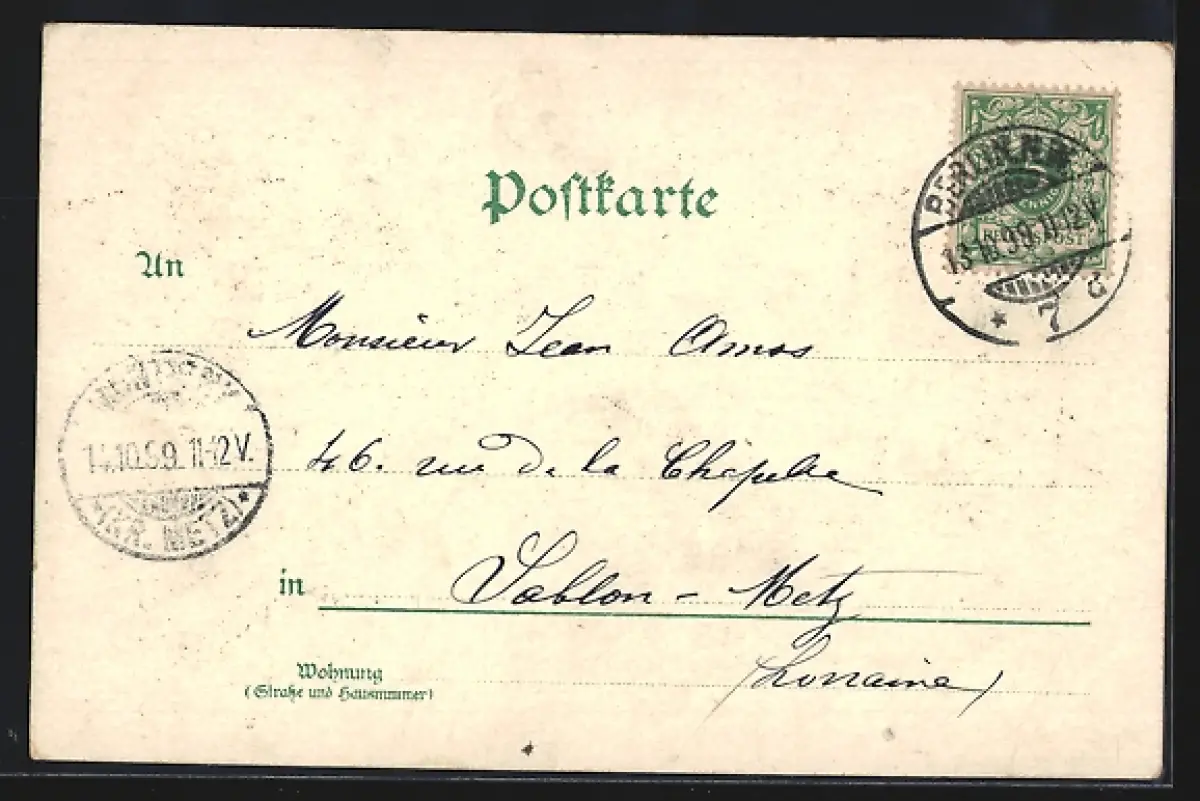 Postkarte
An
Monsieur Jean Amos
46. rue de la Chapelle
in Sablon - Metz
(Lorraine)
Wohnung
(Straße und Hausnummer)
BERLIN N.W.
13.10.99. 11-12V.
* 7 d
REICHSPOST
14.10.99. 11-12V.
*(KR. METZ)*